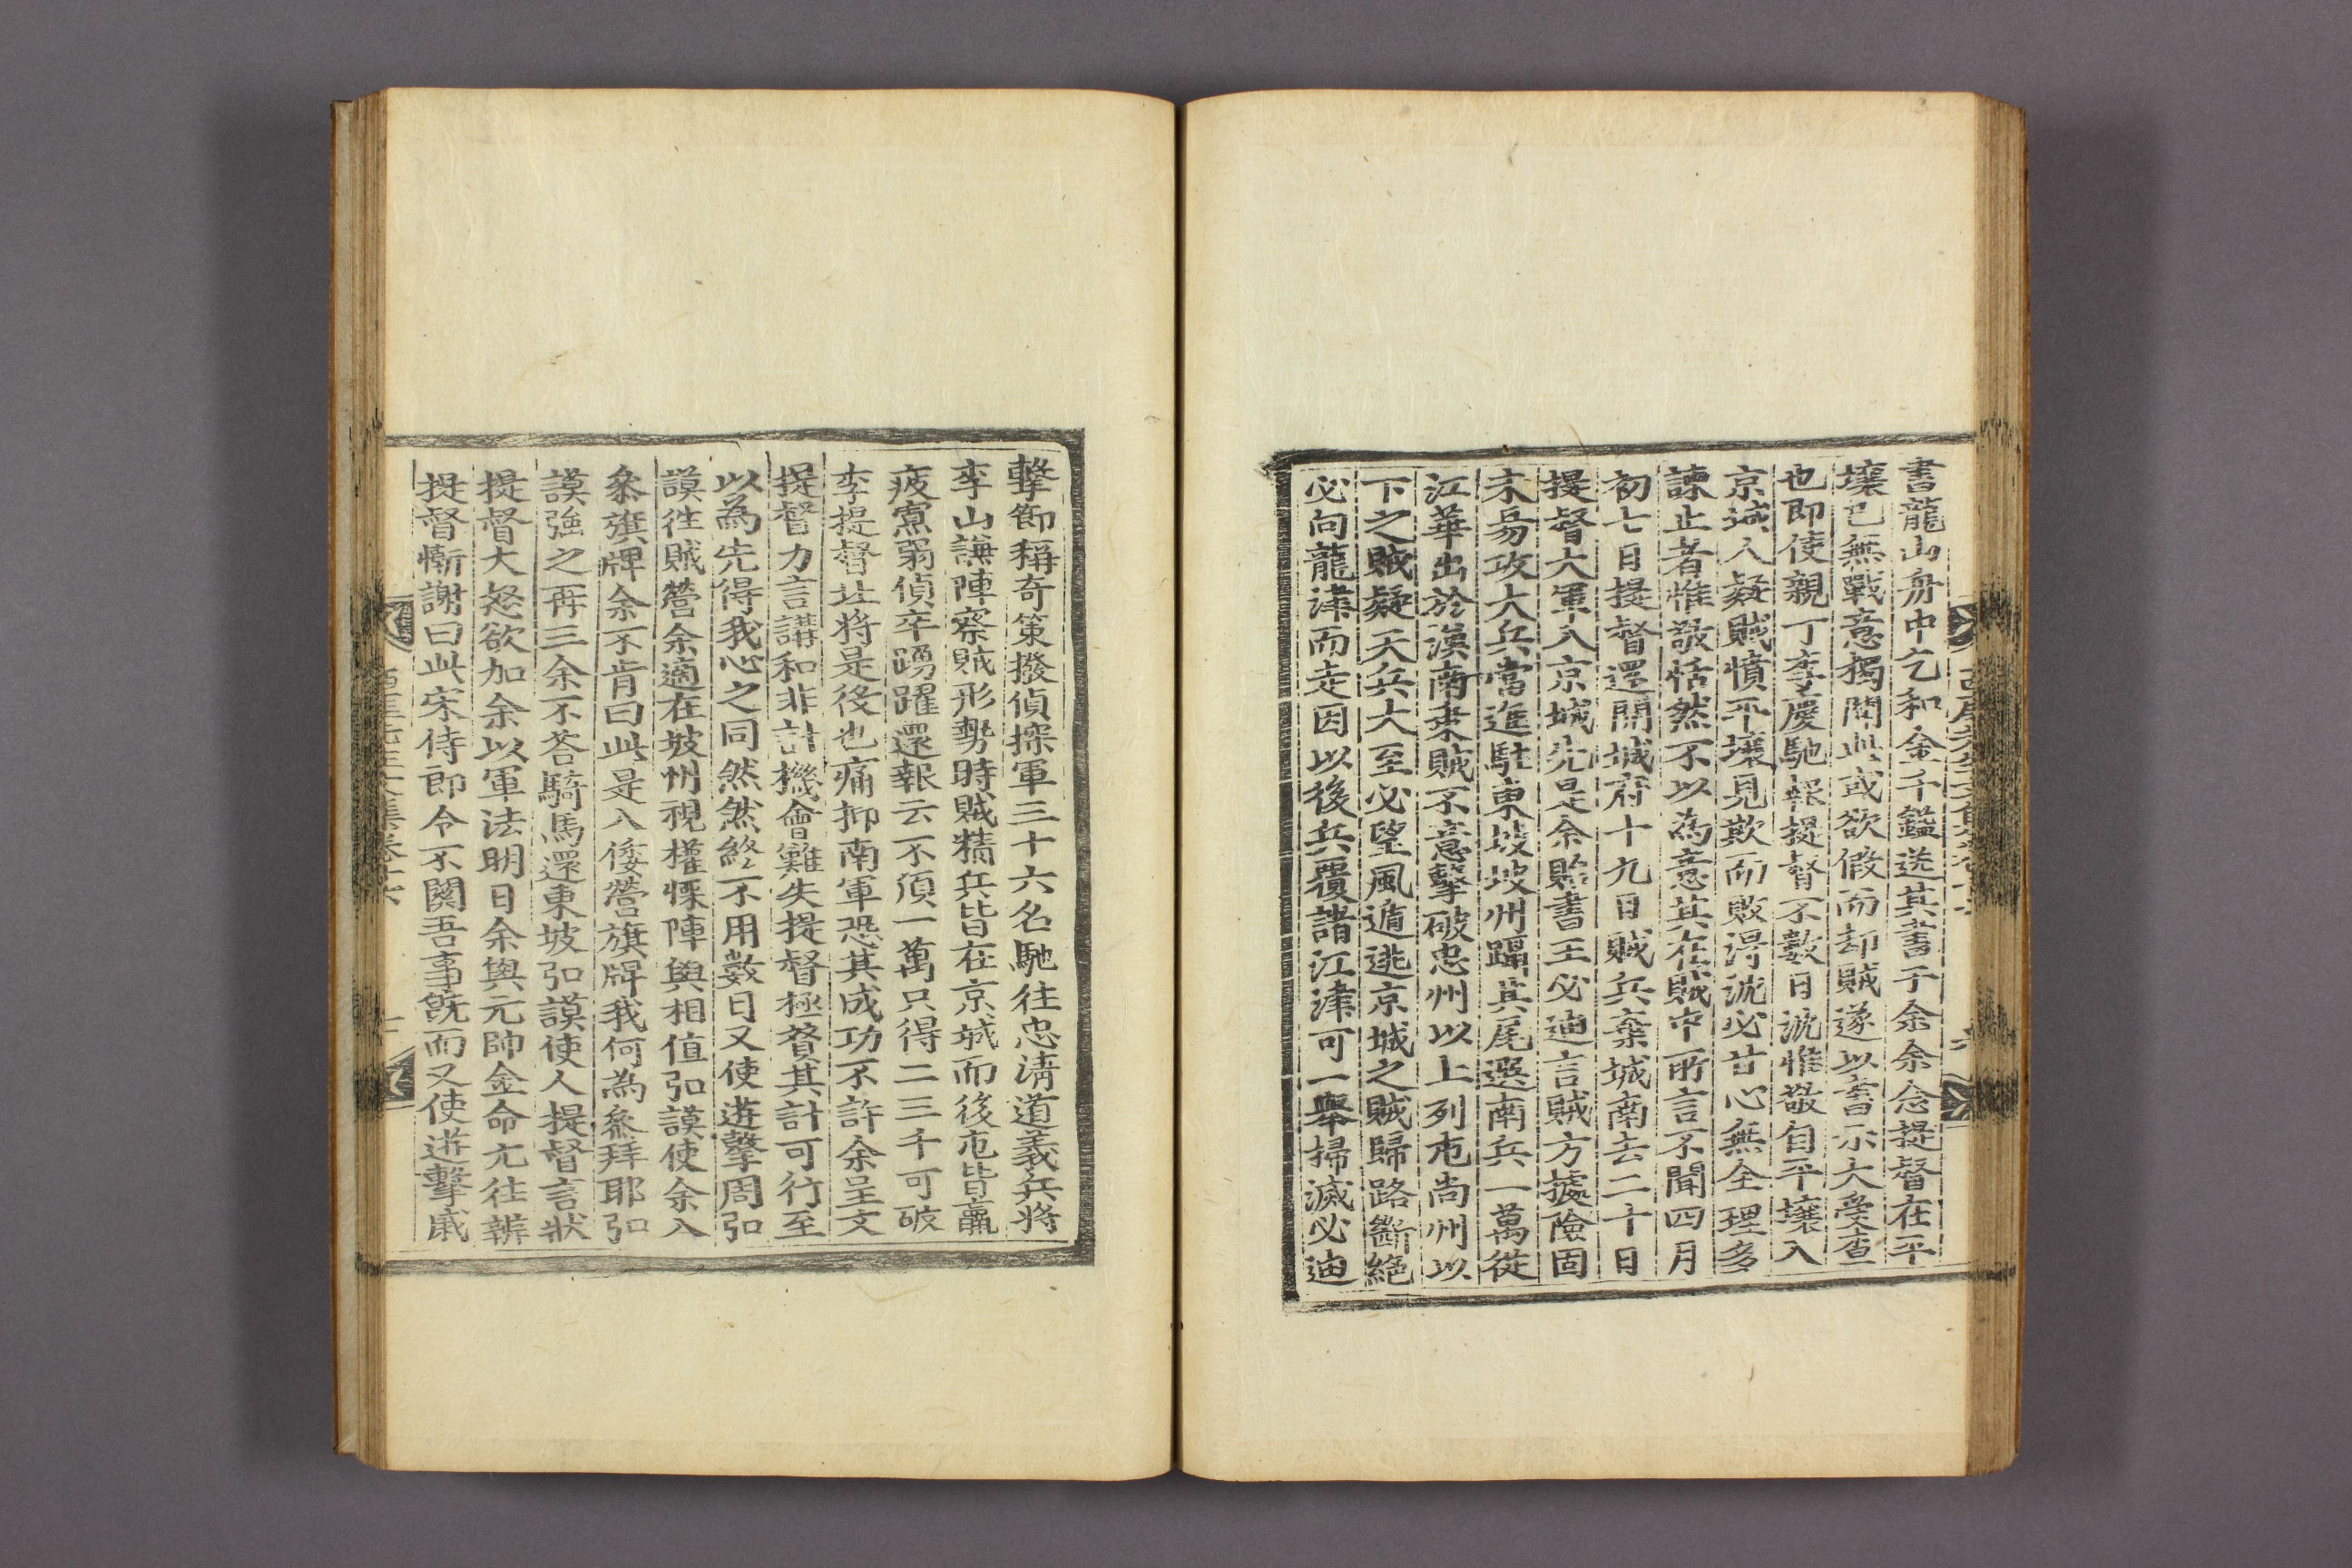 書龍山舟中乞和金千鎰送其書于余余念提督在平
壤已無戰意獨聞此或欲假而却賊遂以書示大受査
也即使親丁李慶馳報提督不數日沈惟敬自平壤入
京城人疑賊憤平壤見欺而敗得沈必甘心無全理多
諫止者惟敬恬然不以爲意其在賊中所言不聞四月
初七日提督還開城府十九日賊兵棄城南去二十日
提督大軍入京城先是余貽書王必迪言賊方據險固
未易攻大兵當進駐東坡坡州躡其尾選南兵一萬從
江華出於漢南乘賊不意擊破忠州以上列屯尙州以
下之賊疑天兵大至必望風遁逃京城之賊歸路斷絶
必向龍津而走因以後兵覆諸江津可一擧掃滅必迪
擊節稱奇策撥偵探軍三十六名馳往忠淸道義兵將
李山謙陣察賊形勢時賊精兵皆在京城而後屯皆羸
疲寡弱偵卒踴躍還報云不須一萬只得二三千可破
李提督北將是役也痛抑南軍恐其成功不許余呈文
提督力言講和非計機會難失提督極贊其計可行至
以爲先得我心之同然然終不用數日又使遊擊周弘
謨往賊營余適在坡州視權慄陣與相值弘謨使余入
參旗牌余不肯曰此是入倭營旗牌我何爲參拜耶弘
謨強之再三余不答騎馬還東坡弘謨使人提督言狀
提督大怒欲加余以軍法明日余與元帥金命元往辨
提督慚謝曰此宋侍郎令不關吾事旣而又使遊擊戚